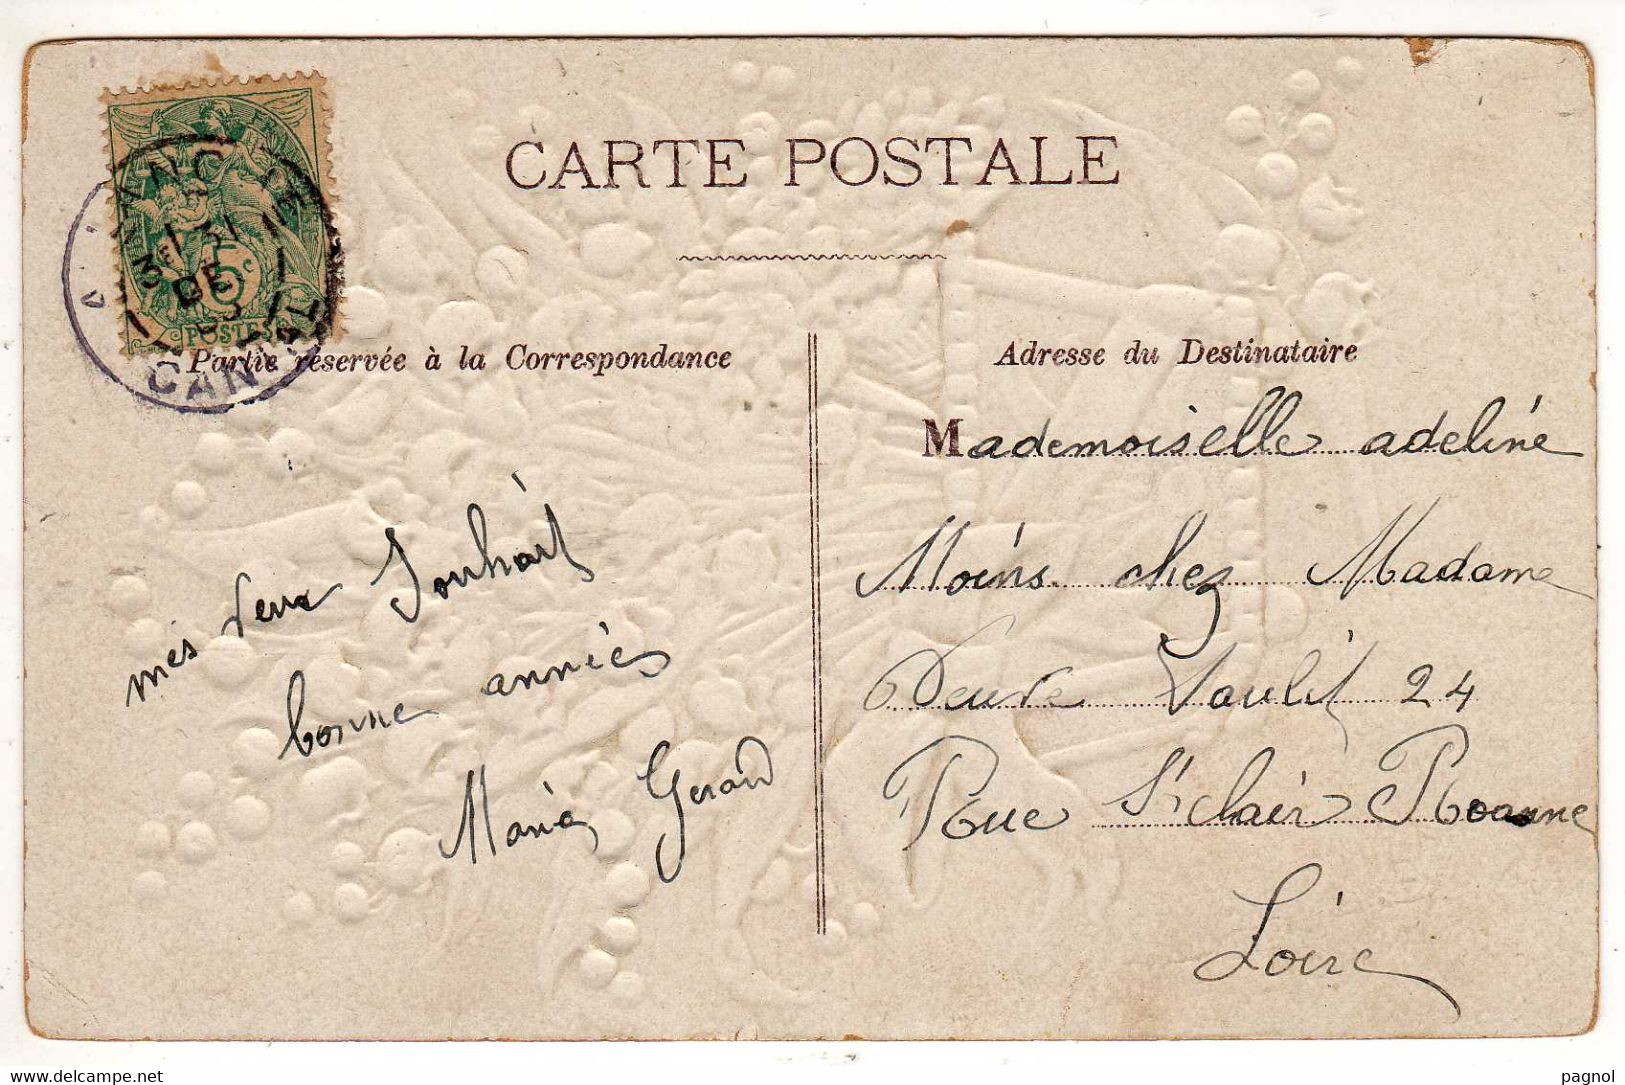 CARTE POSTALE
Partie réservée à la Correspondance
Adresse du Destinataire
Mademoiselle adeline
Moins chez Madame
24
Rue St clair Roanne
Loire
mes Souhait
bonne années
Marie Gerard
5c
POSTES
31
DE
CANTAL
delcampe.net
pagnol